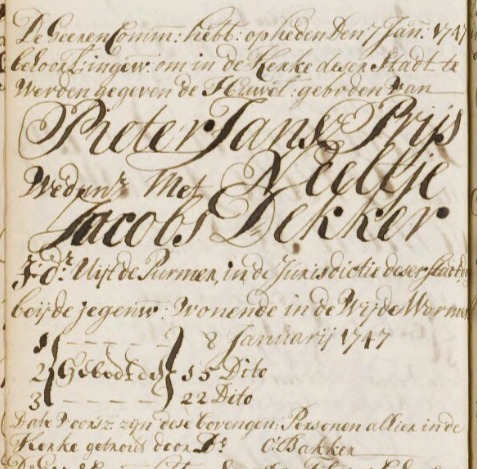 De Heeren Comm: hebb: op heden Den 7 Jan: 1747
belooft ingew: om in de Kerke deser Stadt te
Werden gegeven de Huwel: geboden van
Pieter Jansz Prijs
Wedunr Met Neeltje
Jacobs Dekker
J:dr: Uijt de Purmer, in de Jurisdictie deser stadt
beijde jegenw: Wonende in de Wijde Wormer
1 8 Januarij 1747
2 Geboden 15 Dito
3 22 Dito
Dato Voorsz: zijn dese bovengen: Personen alhier in de
Kerke getrout door Ds: C: Bakker